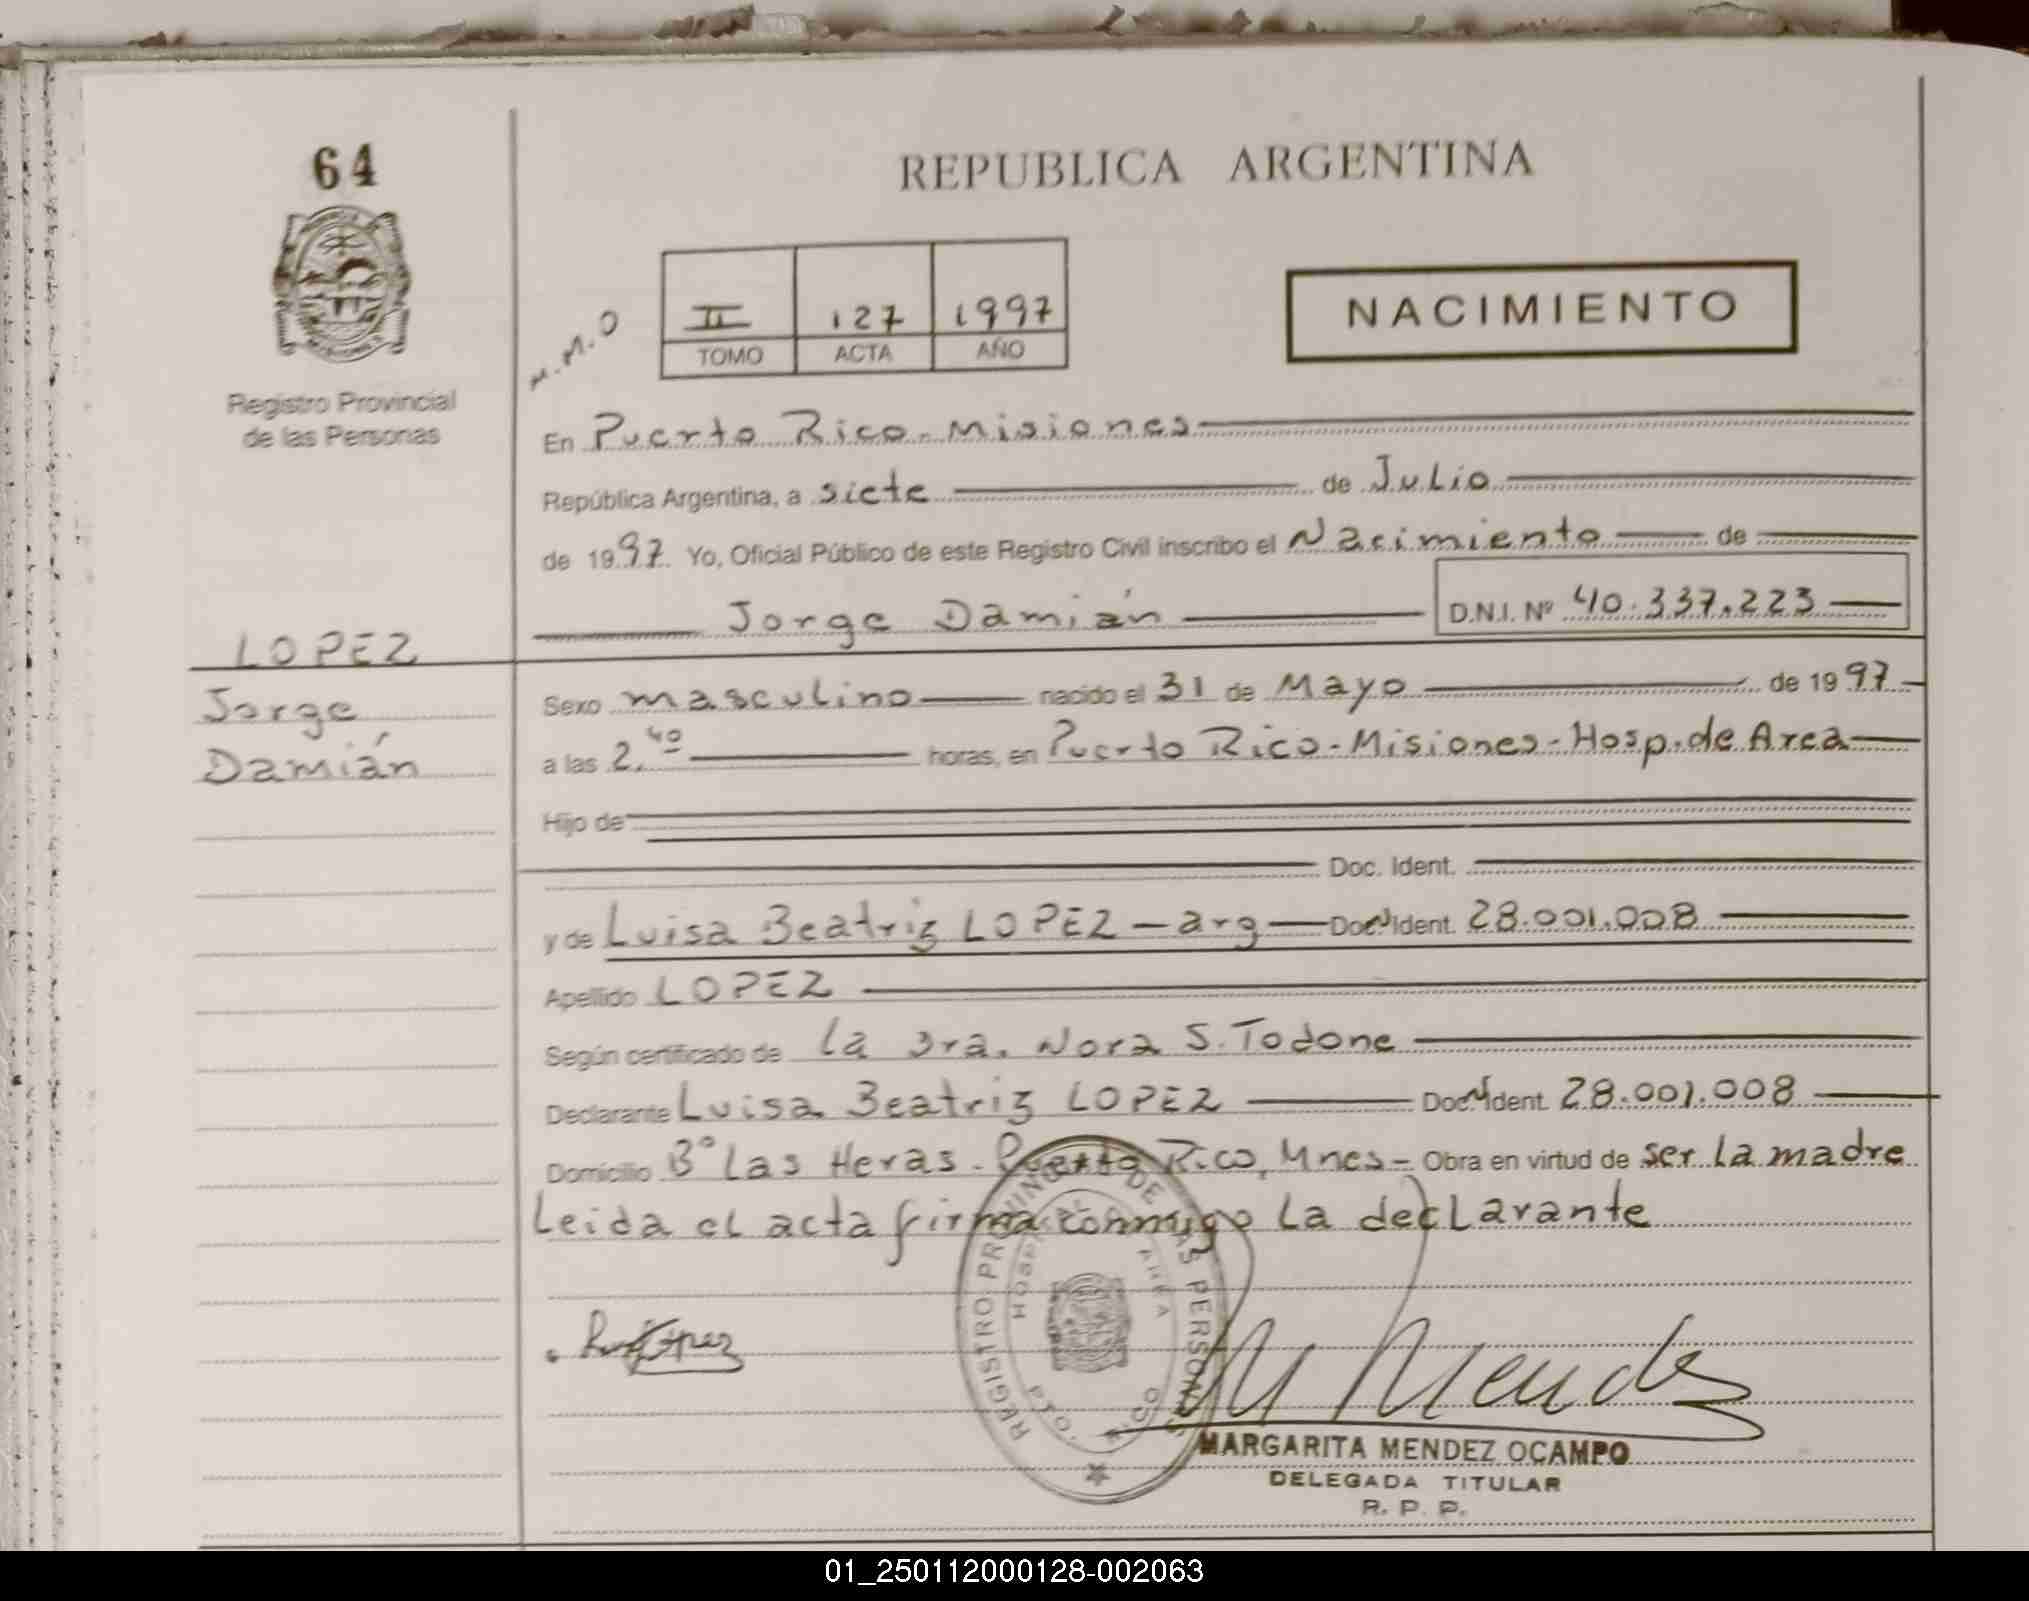 64
REPUBLICA ARGENTINA
Registro Provincial
de las Personas
M.M.O
II 127 1997
TOMO ACTA AÑO
NACIMIENTO
En Puerto Rico - Misiones
República Argentina, a siete de Julio
de 1997 Yo, Oficial Público de este Registro Civil inscribo el Nacimiento de
Jorge Damián D.N.I. Nº 40.337.223
LOPEZ
Jorge
Damián
Sexo masculino nacido el 31 de Mayo de 1997
a las 2.40 horas, en Puerto Rico - Misiones - Hosp. de Area
Hijo de
Doc. Ident.
y de Luisa Beatriz LOPEZ - arg - Doc. Ident. 28.001.008
Apellido LOPEZ
Según certificado de la Dra. Nora S. Todone
Declarante Luisa Beatriz LOPEZ Doc. Ident. 28.001.008
Domicilio Bº Las Heras. Puerto Rico, Mnes - Obra en virtud de ser la madre
Leida el acta firma conmigo la declarante
REGISTRO PROVINCIAL DE LAS PERSONAS
HOSPITAL AREA
PTO. RICO
M Mendez
MARGARITA MENDEZ OCAMPO
DELEGADA TITULAR
R. P. P.
01_250112000128-002063